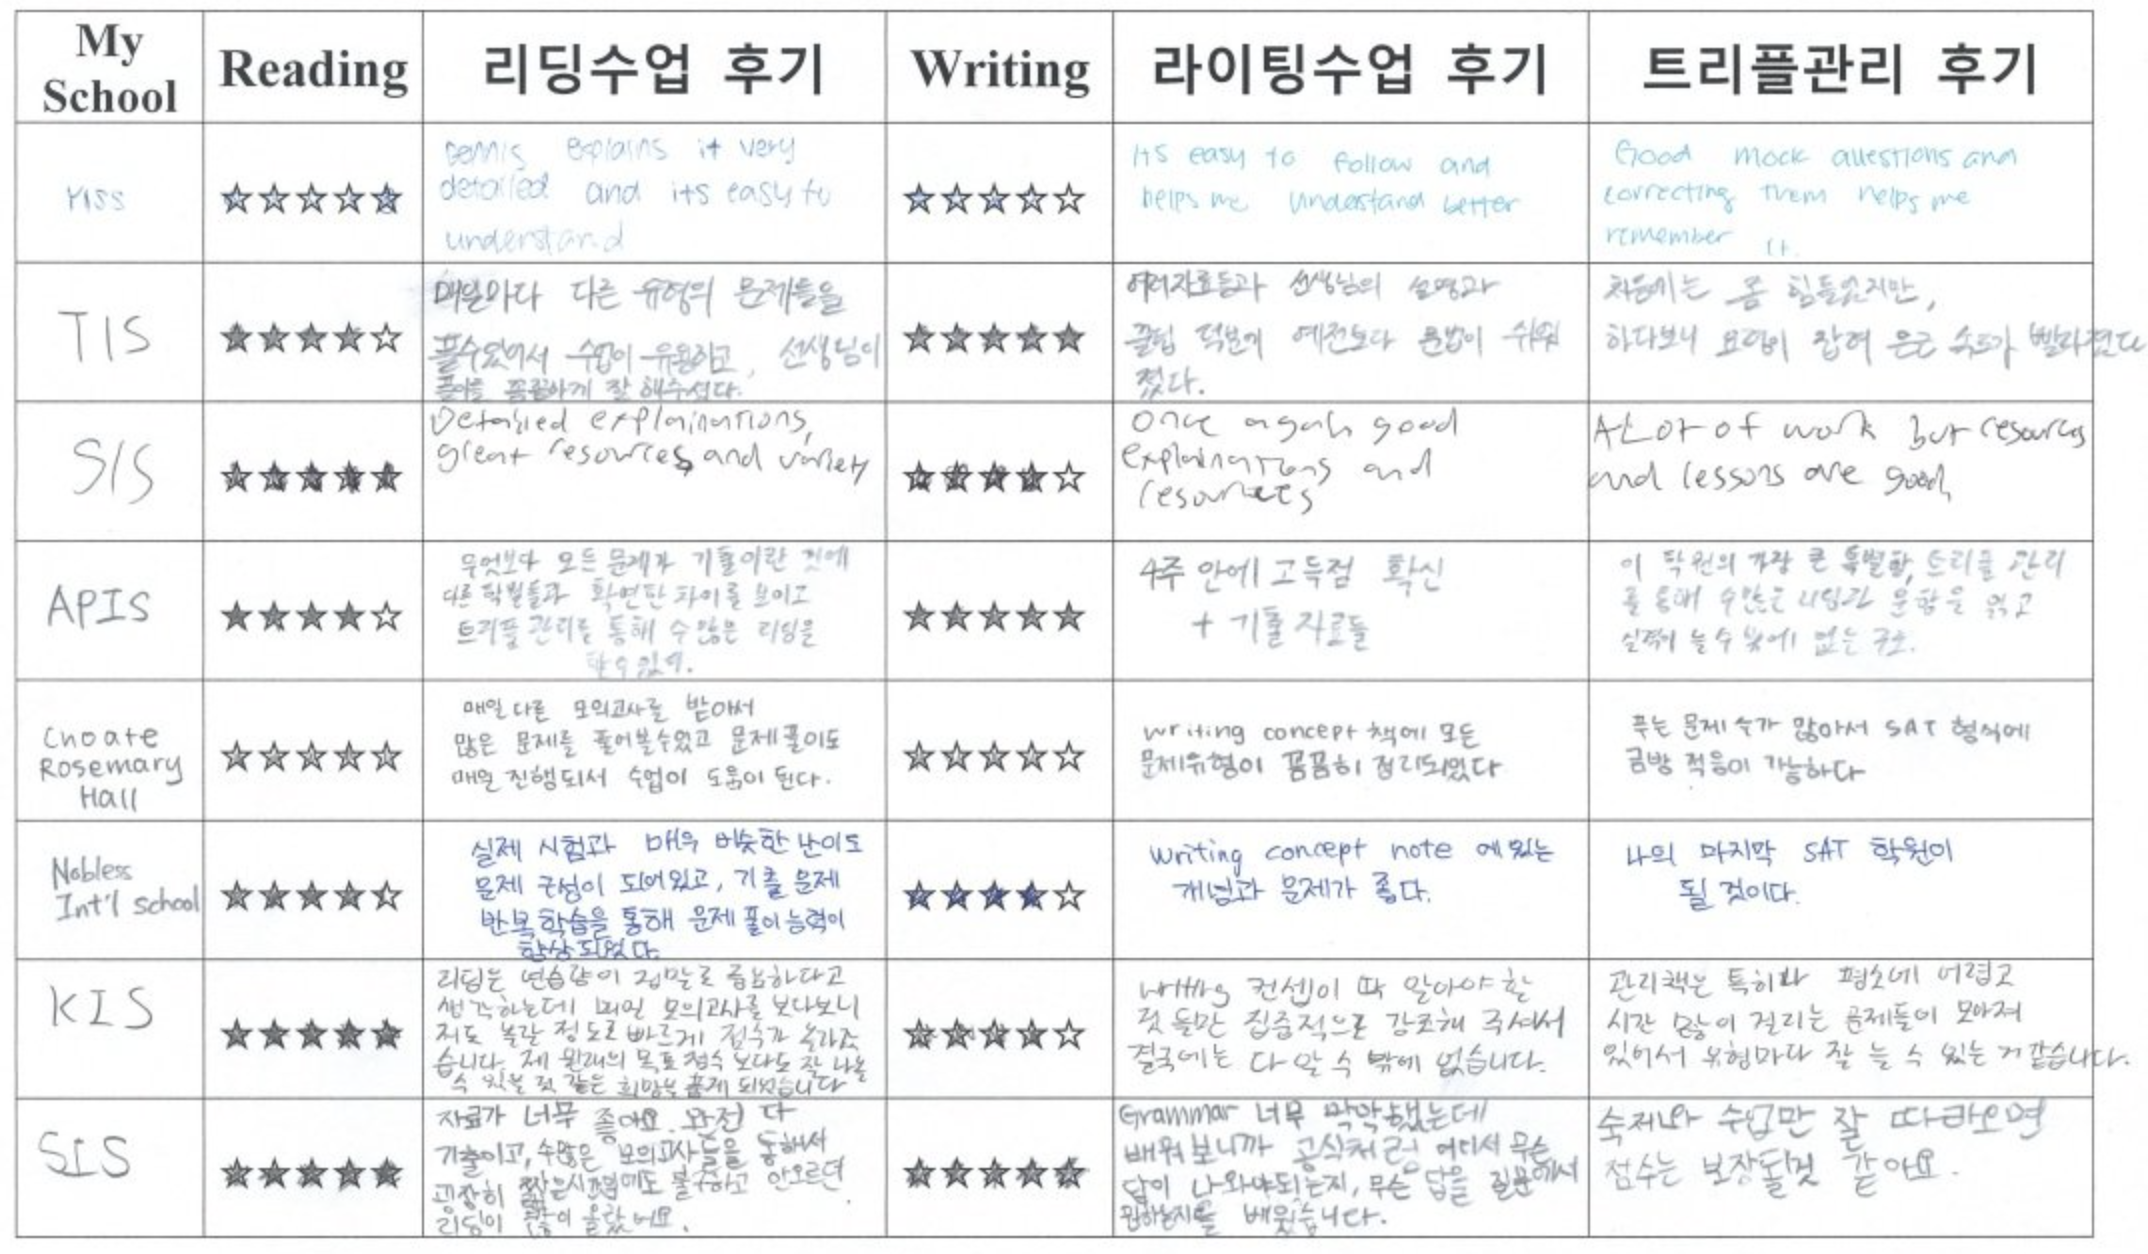 My School
Reading
리딩수업 후기
Writing
라이팅수업 후기
트리플관리 후기
YISS
☆☆☆☆★
Dennis explains it very
detailed and its easy to
understand
★★★★☆
its easy to follow and
helps me understand better
Good mock questions and
correcting them helps me
remember it.
TIS
★★★★☆
매일마다 다른 유형의 문제들을
풀수있어서 수업이 유용하고, 선생님이
풀이를 꼼꼼하게 잘 해주셨다.
★★★★★
여러자료들과 선생님의 설명과
꿀팁 덕분에 예전보다 문법이 쉬워
졌다.
처음에는 좀 힘들었지만,
하다보니 요령이 잡혀 은근 속도가 빨라졌다
SIS
★★★★★
Detailed explainations,
great resources and variety
★★★★☆
Once again good
explainations and
resources
A Lot of work but resources
and lessons are good,
APIS
★★★★☆
무엇보다 모든 문제가 기출이란 것에
다른 학원들과 확연한 차이를 보이고
트리플 관리를 통해 수많은 리딩을
할 수 있다.
★★★★★
4주 안에 고득점 확신
+ 기출 자료들
이 학원의 가장 큰 특별함, 트리플 관리
를 통해 수많은 리딩과 문법을 읽고
실력이 늘 수 밖에 없는 구조.
Choate
Rosemary
Hall
★★★★★
매일 다른 모의고사를 받아서
많은 문제를 풀어볼수있고 문제풀이도
매일 진행되서 수업이 도움이 된다.
★★★★☆
writing concept 책에 모든
문제유형이 꼼꼼히 정리되있다
푸는 문제 수가 많아서 SAT 형식에
금방 적응이 가능하다
Nobless
Int'l school
★★★★☆
실제 시험과 매우 비슷한 난이도
문제 구성이 되어있고, 기출 문제
반복학습을 통해 문제 풀이 능력이
향상되었다.
★★★★☆
Writing concept note 에 있는
개념과 문제가 좋다.
나의 마지막 SAT 학원이
될 것이다.
KIS
★★★★★
리딩은 연습량이 정말로 중요하다고
생각하는데 매일 모의고사를 보다보니
저도 놀랄 정도로 빠르게 점수가 올라갔
습니다. 제 원래의 목표 점수 보다도 잘 나올
수 있을 것 같은 희망을 품게 되었습니다
★★★★☆
writing 컨셉이 딱 알아야 할
것 들만 집중적으로 강조해 주셔서
결국에는 다 알 수 밖에 없습니다.
관리책은 특히나 평소에 어렵고
시간 많이 걸리는 문제들이 모아져
있어서 유형마다 잘 늘 수 있는 거 같습니다.
SIS
★★★★★
자료가 너무 좋아요. 완전 다
기출이고, 수많은 모의고사들을 통해서
굉장히 짧은시간에도 불구하고 안오르던
리딩이 많이 올랐어요.
★★★★★
Grammar 너무 막막했는데
배워보니까 공식처럼 어디서 무슨
답이 나와야되는지, 무슨 답을 질문에서
원하는지를 배웠습니다.
숙제와 수업만 잘 따라오면
점수는 보장될것 같아요.